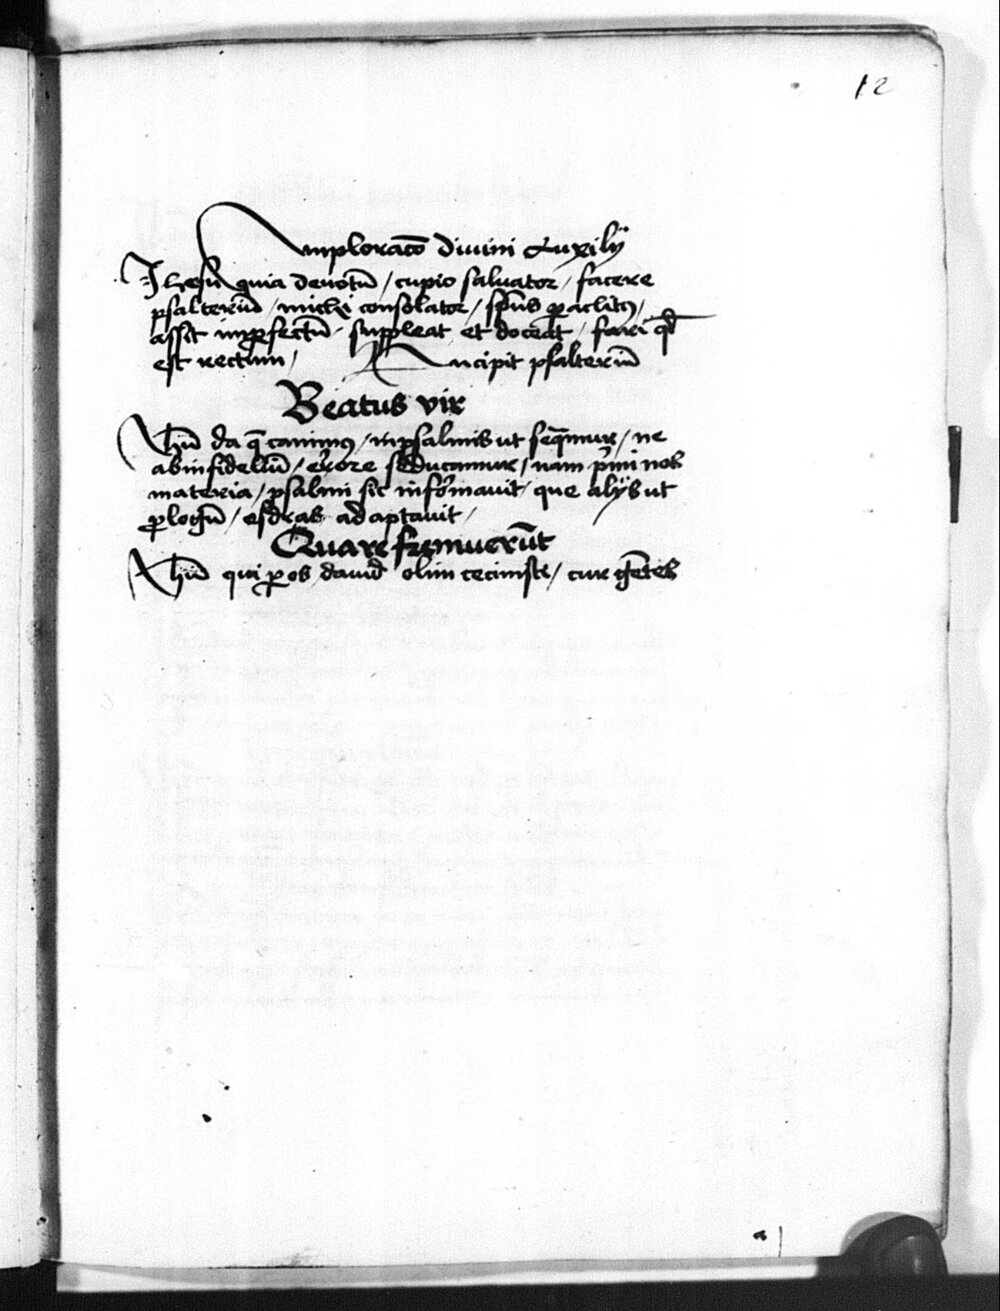 12
Imploracō diuini Auxilÿ
Jhesu quia deuotū / cupio saluator / facere
psalteriū / michi consolator / sp̄us ꝑaclitꝰ /
assit imꝑfectū / suppleat et doceat / fari qd̄
est rectum / Incipit psalteriū
Beatus vir
Jhū da q̄ canimꝰ / in psalmis ut seq̄mur / ne
ab infideliū / errore seducamur / nam p̄mi nos
materia / psalmi sic informauit / que alÿs ut
ꝓlogū / esdras adaptauit /
Quare fremuerūt
Jhū qui ꝑ os dauid olim cecinisti / cur gētes
a